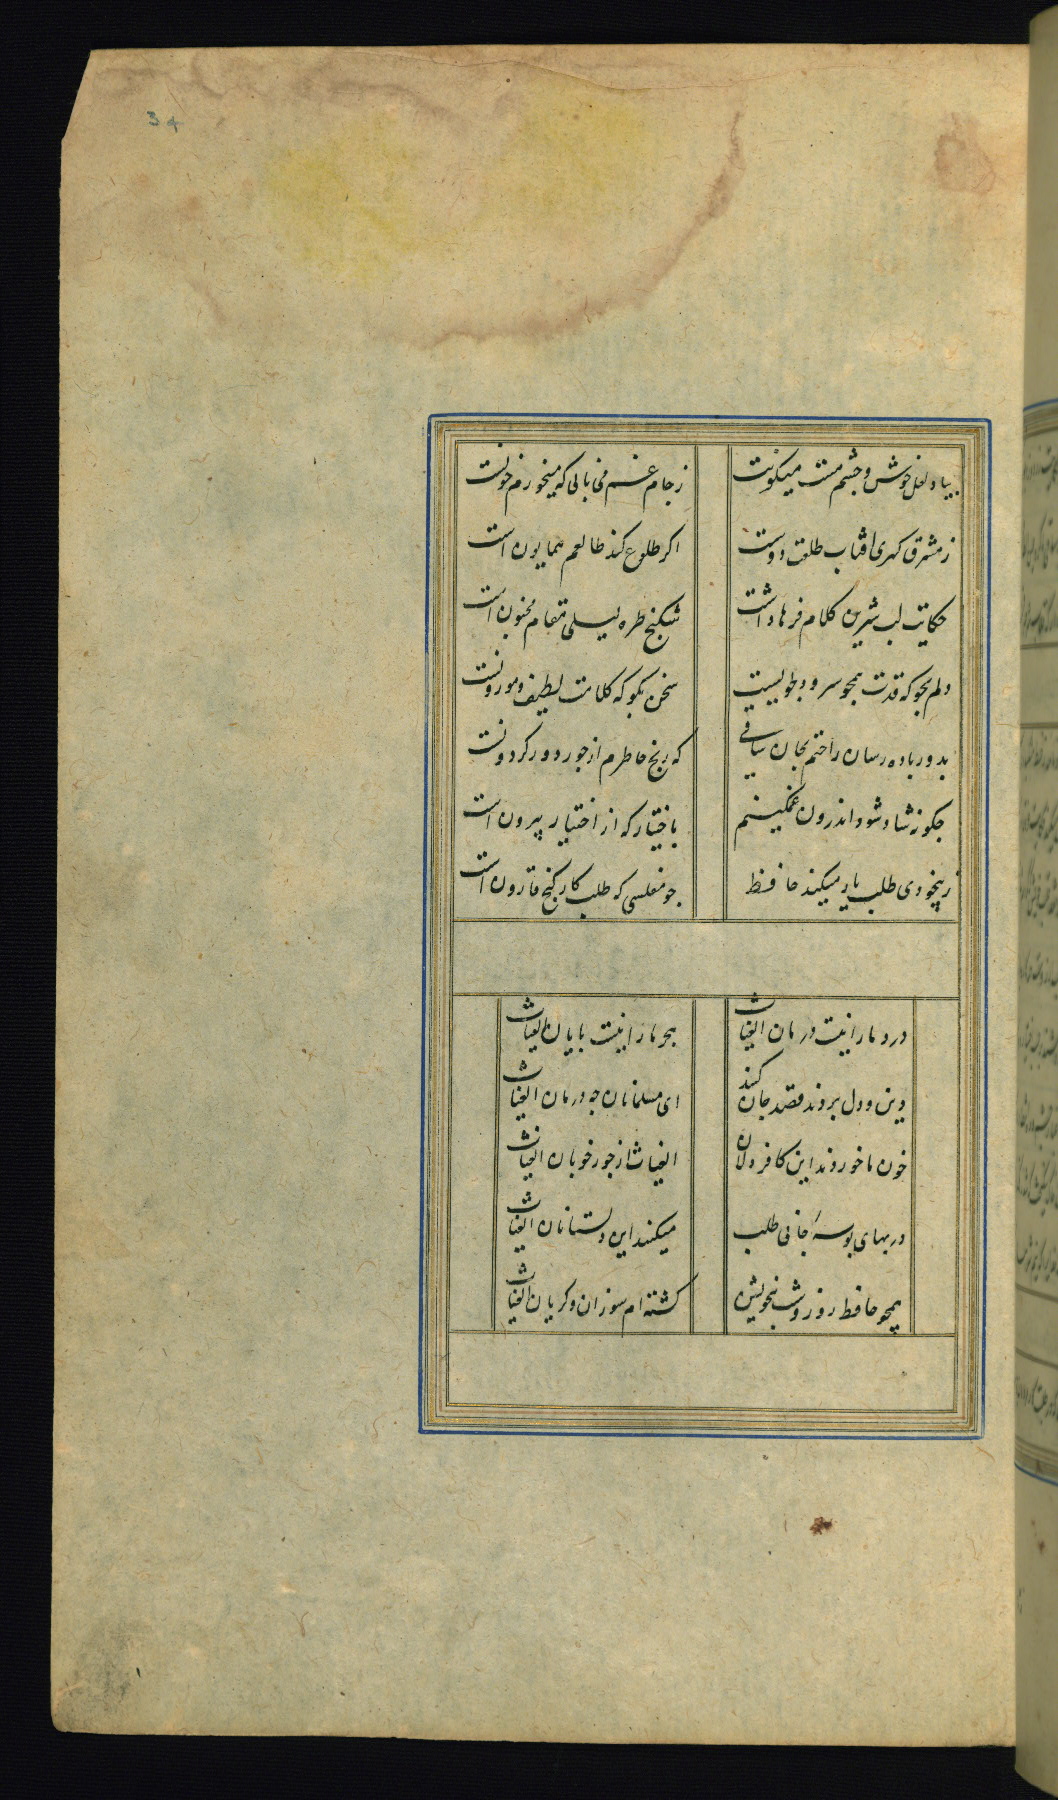 34
بیاد لعل خوش و چشم مست میکونت زجام غم می نابی که میخورم خونست
زمشرق کهری افتاب طلعت دوست اکر طلوع کند طالعم همایون است
حکایت لب شیرین کلام فرهاد است شکنج طره لیلی مقام مجنون است
دلم بجو که قدت همجو سرو دلجوییست سخن بکو که کلامت لطیف و موزونست
بدور باده رسان راحتم بجان ساقی که رنج خاطرم از جور دور کردونست
جکونه شاد شود اندرون غمکینم باختیار که از اختیار بیرون است
زبیخودی طلب یار میکند حافظ جو مفلسی که طلب کار کنج قارون است
درد ما را نیست درمان الغیاث هجر ما را نیست پایان الغیاث
دین و دل بردند قصد جان کنند ای مسلمانان جه درمان الغیاث
خون ما خوردند این کافر دلان الغیاث از جور خوبان الغیاث
در بهای بوسهٔ جانی طلب میکنند این دلستانان الغیاث
همچو حافظ روز و شب بیخویش کشته ام سوزان و کریان الغیاث